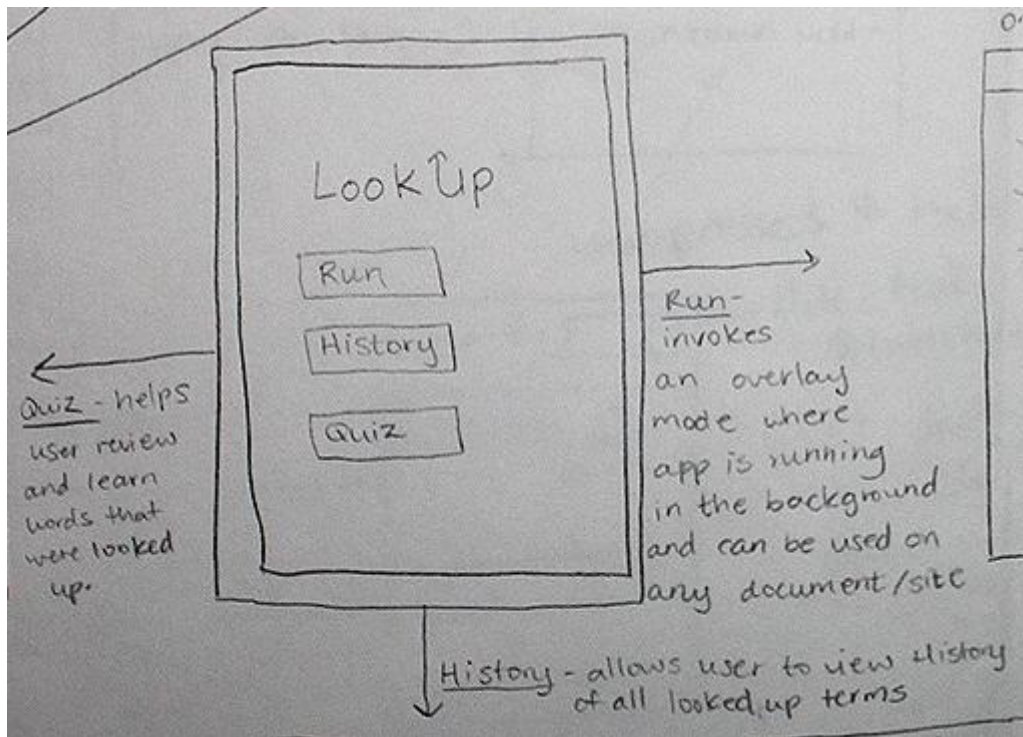 LookUp
Run
History
Quiz
Quiz - helps
user review
and learn
words that
were looked
up.
Run-
invokes
an overlay
mode where
app is running
in the background
and can be used on
any document/site
History - allows user to view History
of all looked up terms